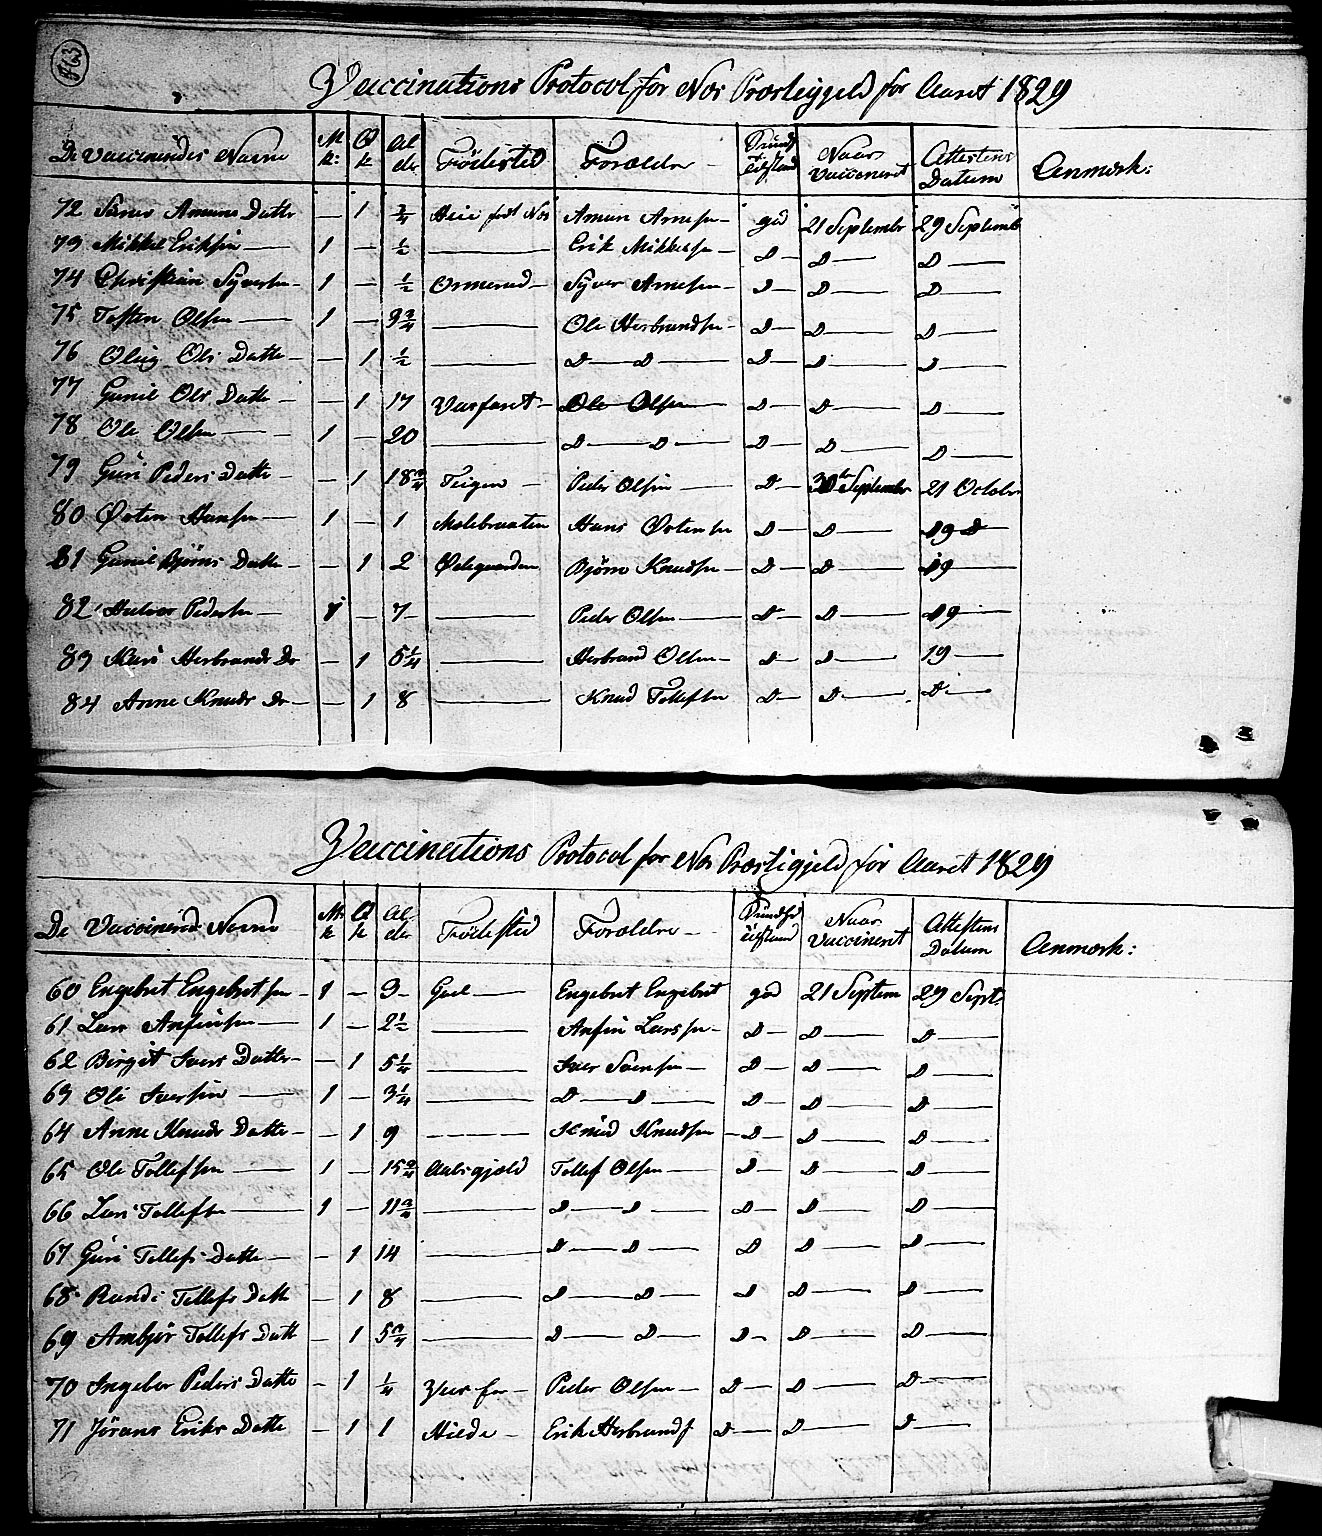 Vaccinations Protocol for Næs Præstegjeld for Aaret 1829
De Vaccineredes Navne M k: Q k Alder Fødested Forældre Sundhedstilstand Naar Vaccineret Attestens Datum Anmærk:
72 Amuns Datter — 1 3/4 Amun Arnesen — god 21 Septembr 29 Septemb
73 Mikkel Eriksen — 1 — 1/2 — Erik Mikkelsen — D — D — D —
74 Christian Syversen — 1 — 1/2 Ormerud — Syver Arnesen — D — D — D —
75 Tosten Olsen — 1 — 9 3/4 — Ole Herbrandsen — D — D — D —
76 Oleig Ols Datte — — 1 1/2 — D — D — D — D — D
77 Gunil Ols Datte — — 1 17 — Ole Olsen — D — D — D —
78 Ole Olsen — 1 — 20 — D — D — D — D — D —
79 Guri Peders Datte — — 1 18 3/4 Teigen — Peder Olsen — D — 30te Septembr 21 Octobr
80 Østen Hansen — 1 — 1 Molebraaten Hans Østensen D — D — 19 D
81 Gunil Bjørns Datte — — 1 2 Ødegaarden Bjørn Knudsen — D — D — 19 —
82 Halvor Pedersen — 1 — 7 — Peder Olsen — D — D — 19 —
83 Kari Herbrands Dr — 1 5 1/4 — Herbrand Olsen — D — D — 19 —
84 Anne Knuds Dr — — 1 8 — Knud Tollefsen D — D — D —
Vaccinations Protocol for Næs Præstegjeld for Aaret 1829
De Vaccinered Navne M k Q k Alder Fødested Forældre — Sundhedstilstand Naar Vaccineret Attestens Datum Anmærk:
60 Engebret Engebretsen — 1 — 3 — Engebret Engebret god 21 Septem 29 Sept.
61 Lars Anfinsen — 1 — 2 1/2 — Anfin Larssen — D — D — D —
62 Birgit Ivers Datter — — 1 5 1/4 — Iver — D — D — D —
63 Ole Iversen — 1 — 3 1/4 — D — D — D — D — D —
64 Anne Knuds Datte — — 1 9 — Knud Knudsen — D — D — D —
65 Ole Tollefsen — 1 — 15 3/4 Aalsgjæld Tollef Olsen — D — D — D —
66 Lars Tollefsen — 1 — 11 3/4 — D — D — D — D — D —
67 Guri Tollefs Datte — — 1 14 — D — D — D D — D —
68 Randi Tollefs Datt — 1 8 — D — D — D D — D —
69 Ambjør Tollefs Datt — 1 5 3/4 — D — D — D — D — D —
70 Ingebor Peders Datte — 1 1/4 — Peder Olsen — D — D — D —
71 Jøran Eriks Datte — 1 1 Hilde — Erik Herbrands D — D — D —